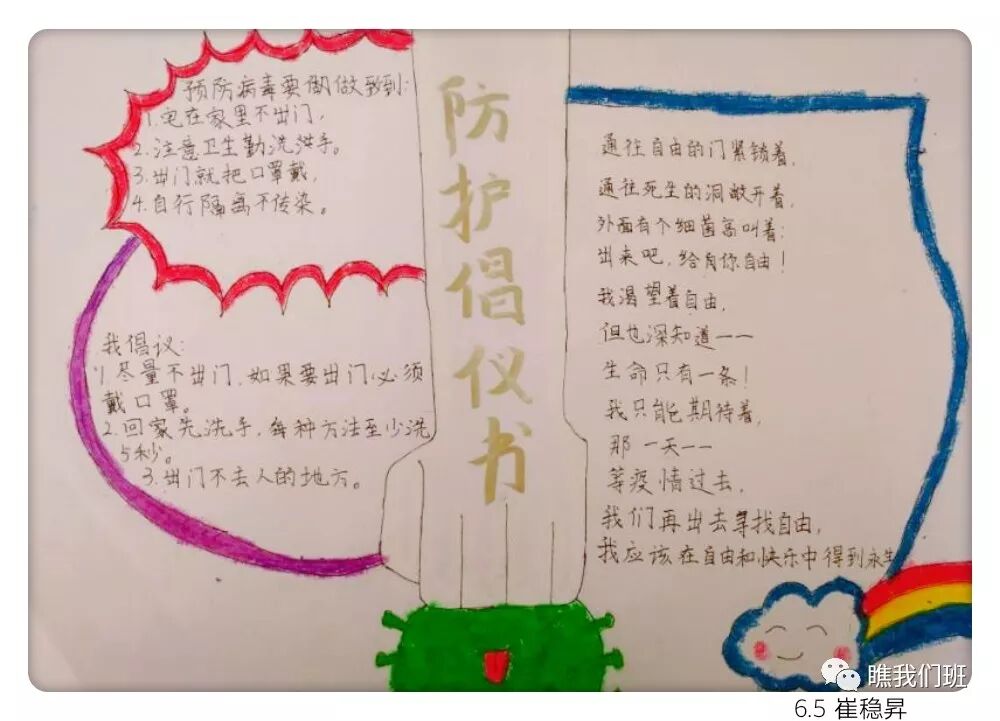 预防病毒要做到:
1.宅在家里不出门,
2.注意卫生勤洗手。
3.出门就把口罩戴,
4.自行隔离不传染。
防护倡仪书
我倡议:
1.尽量不出门,如果要出门必须
戴口罩。
2.回家先洗手,每种方法至少洗
5秒。
3.出门不去人的地方。
通往自由的门紧锁着,
通往死生的洞敞开着,
外面有个细菌高叫着:
出来吧,给你自由!
我渴望着自由,
但也深知道——
生命只有一条!
我只能期待着,
那一天——
等疫情过去,
我们再出去寻找自由,
我应该在自由和快乐中得到永生
瞧我们班
6.5 崔稳昇